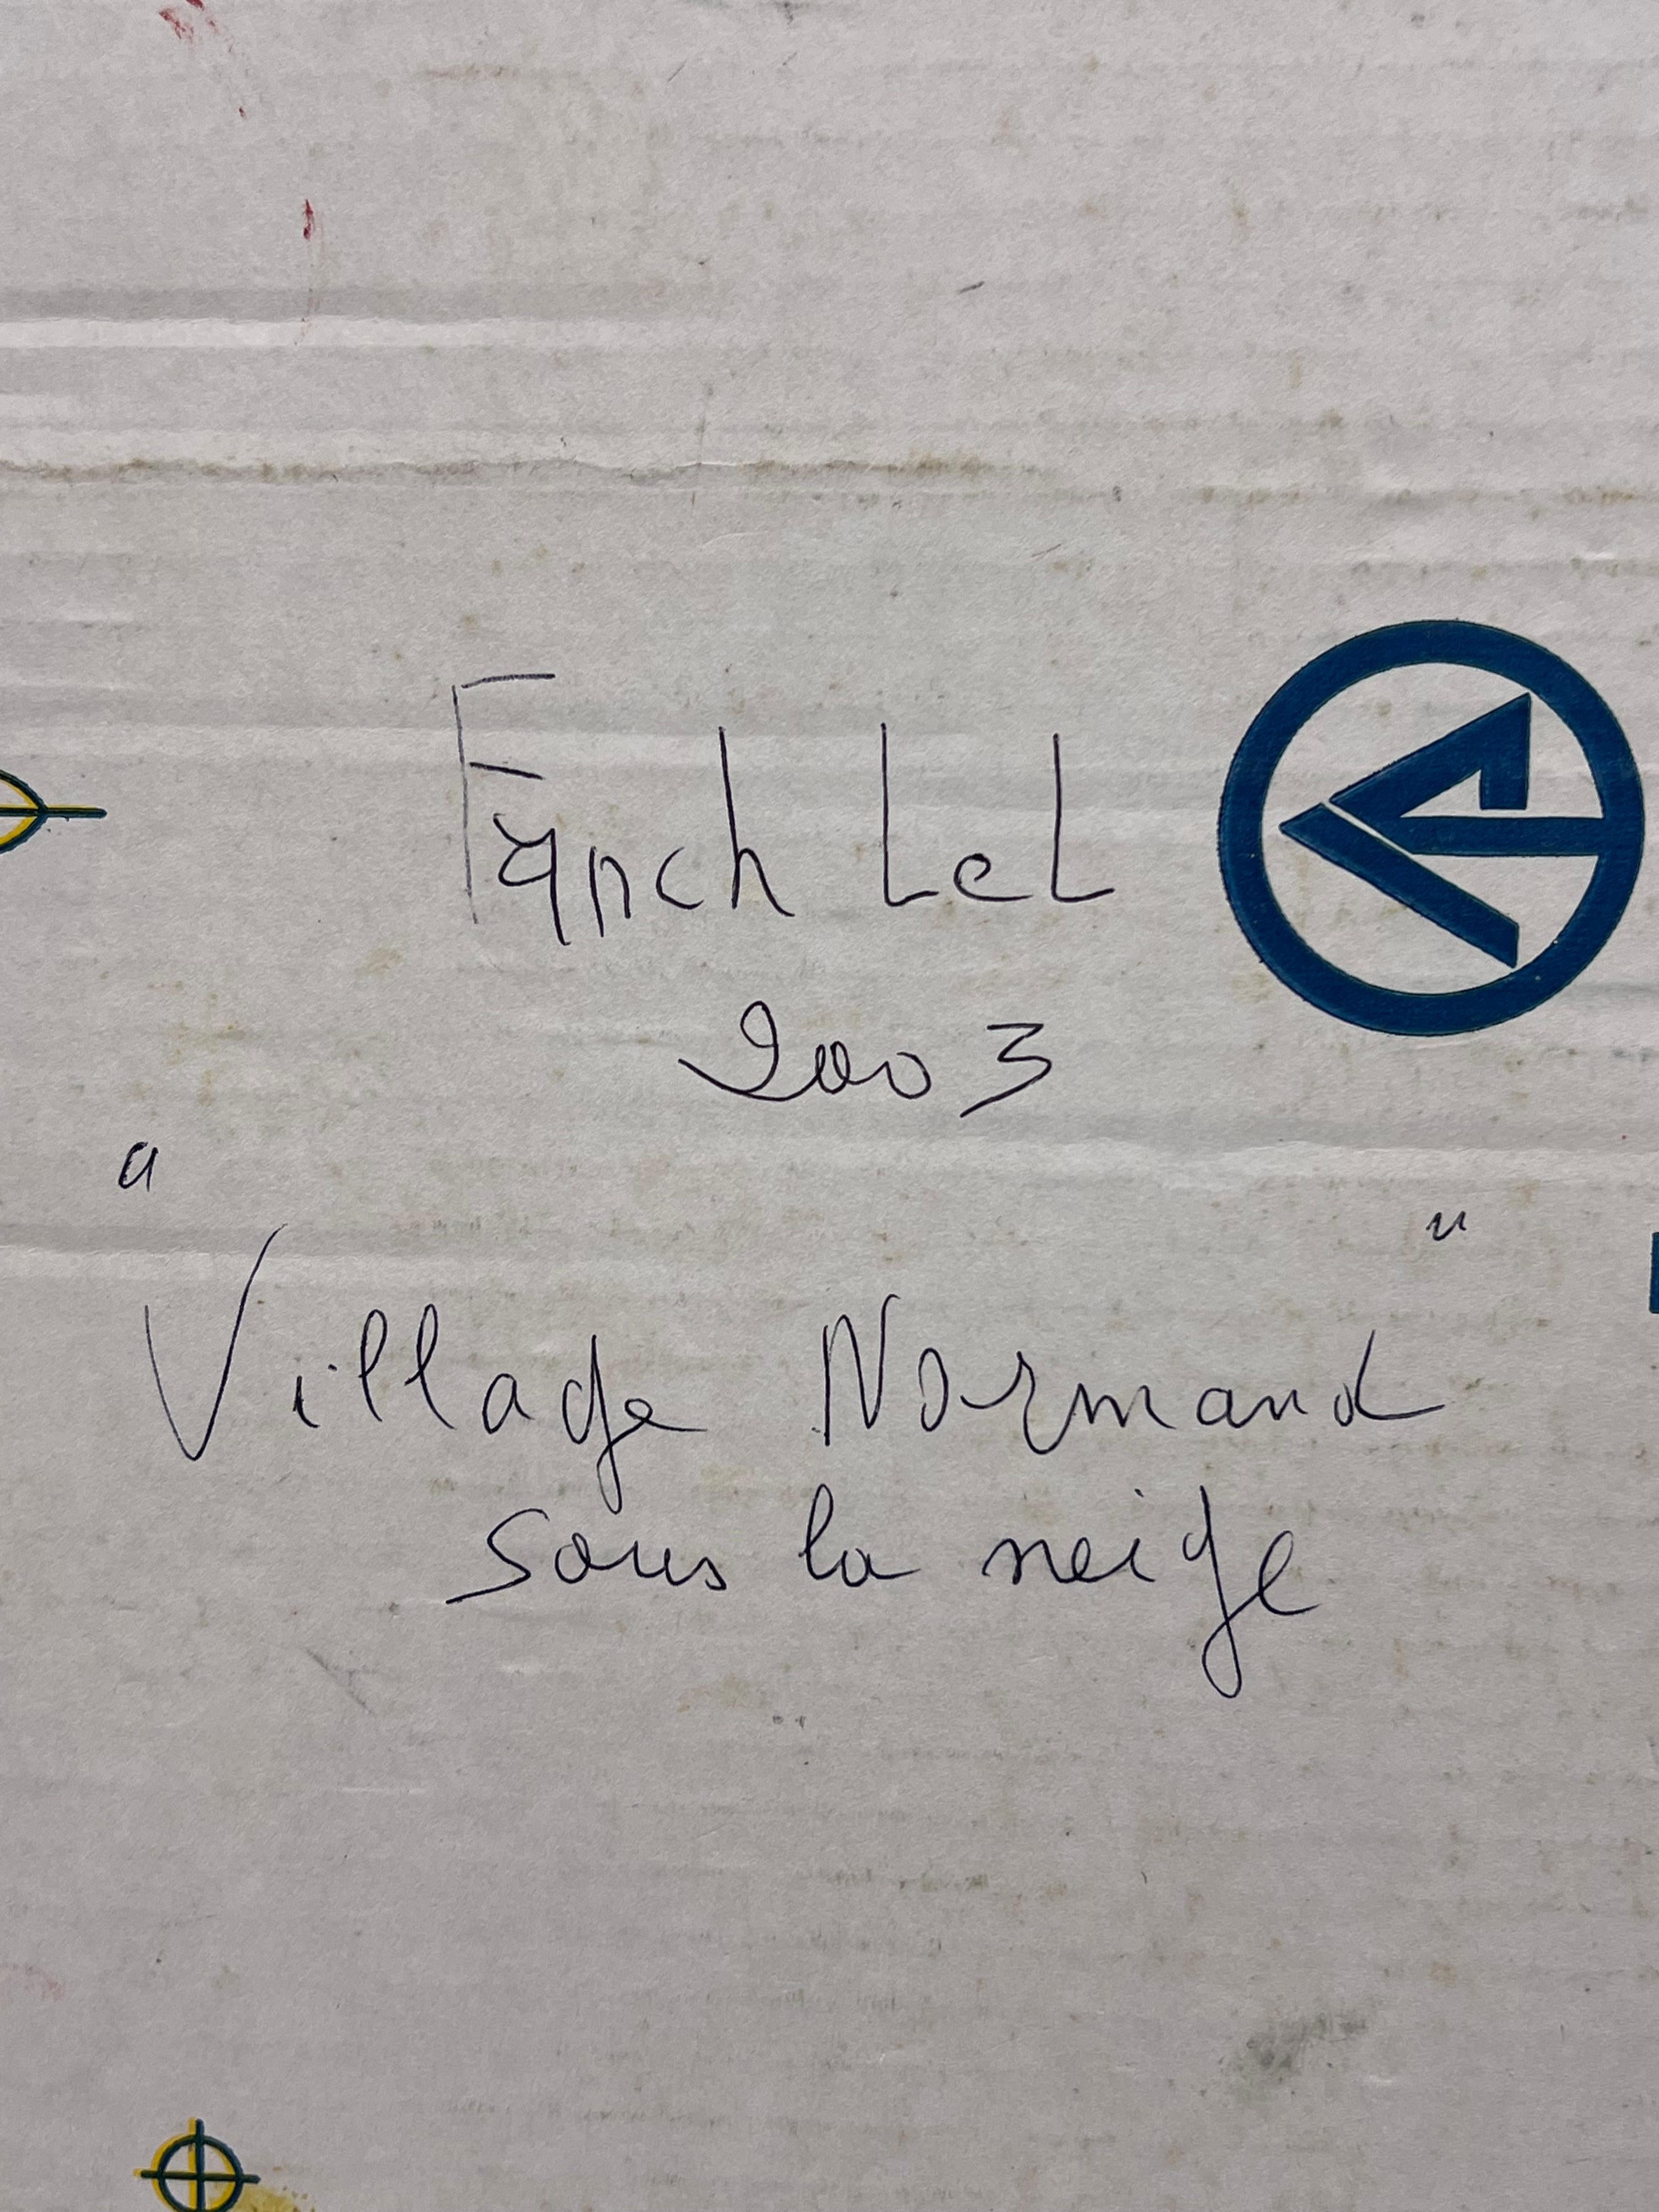 Fynch LeL
2003
"Village Normand"
sous la neige